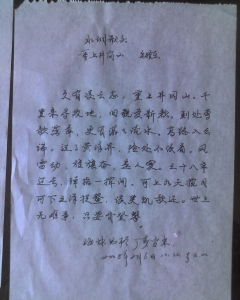 水调歌头
重上井冈山 毛泽东
久有凌云志，重上井冈山。千
里来寻故地，旧貌变新颜。到处莺
歌燕舞，更有潺潺流水，高路入云
端。过了黄洋界，险处不须看。风
雷动，旌旗奋，是人寰。三十八年
过去，弹指一挥间。可上九天揽月，
可下五洋捉鳖，谈笑凯歌还。世上
无难事，只要肯登攀。